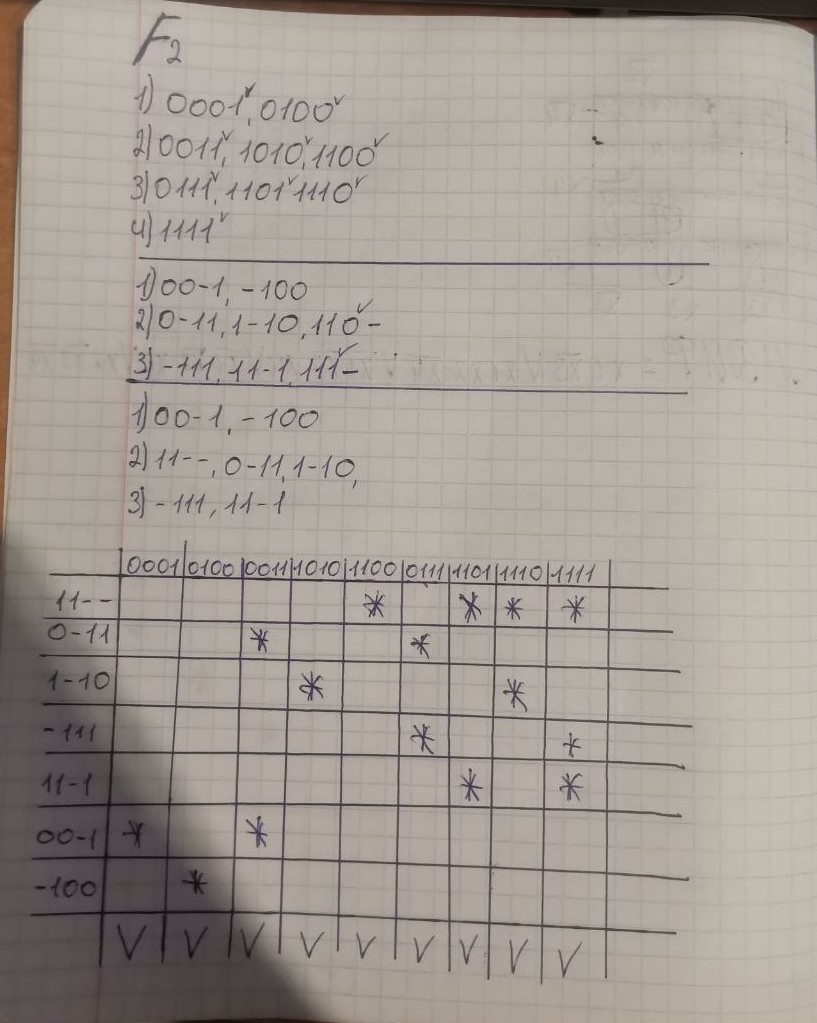 F2
1) 0001, 0100
2) 0011, 1010, 1100
3) 0111, 1101 1110
4) 1111
1) 00-1, -100
2) 0-11, 1-10, 110-
3) -111, 11-1, 111-
1) 00-1, -100
2) 11--, 0-11, 1-10,
3) -111, 11-1
0001 0100 0011 1010 1100 0111 1101 1110 1111
11-- * * * *
0-11 * *
1-10 * *
-111 * *
11-1 * *
00-1 * *
-100 *
V V V V V V V V V